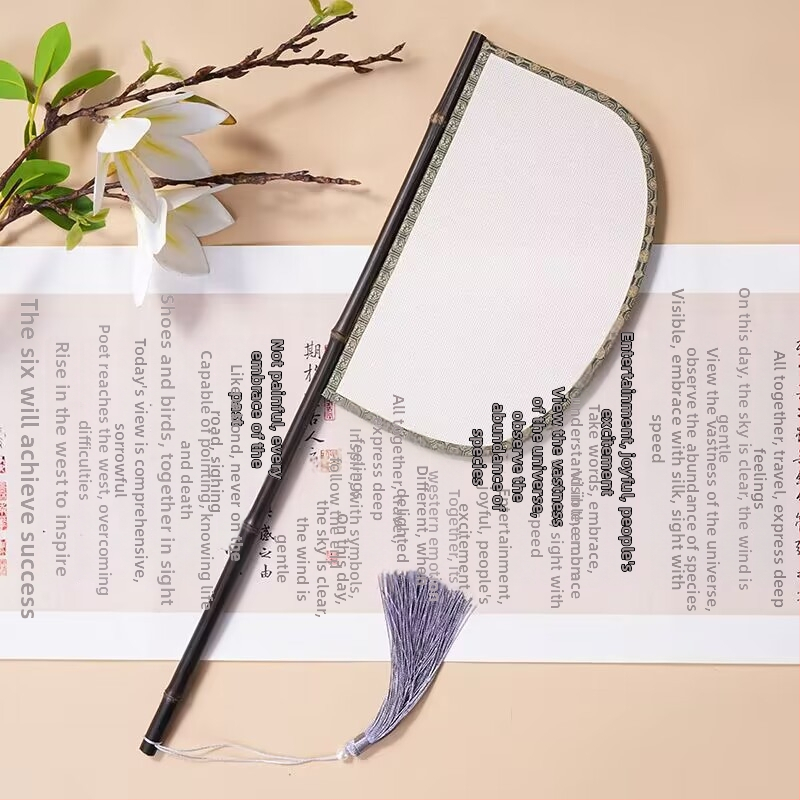 All together, travel, express deep
feelings
On this day, the sky is clear, the wind is
gentle
View the vastness of the universe,
observe the abundance of species
Visible, embrace with silk, sight with
speed
Entertainment, joyful, people's
excitement
Take words, embrace,
View the vastness
of the universe,
observe the
abundance of
species
sight with
speed
Entertainment,
joyful, people's
excitement
Together, its
western
Different, when
All together,
express deep
with symbols,
follow the
On this day,
the sky is clear,
the wind is
gentle
期
古人
感之由
Not painful, every
embrace of the
past
never on the
road, sighing
Capable of pointing, knowing life
and death
Shoes and birds, together in sight
Today's view is comprehensive,
sorrowful
Poet reaches the west, overcoming
difficulties
Rise in the west to inspire
The six will achieve success